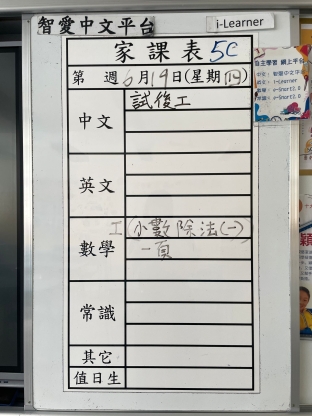 智愛中文平台
i-Learner
家課表 5C
第 週 6月19日(星期四)
中文
試後工
英文
數學
工(小數除法(一)
一頁
常識
其它
值日生
自主學習 網上平台